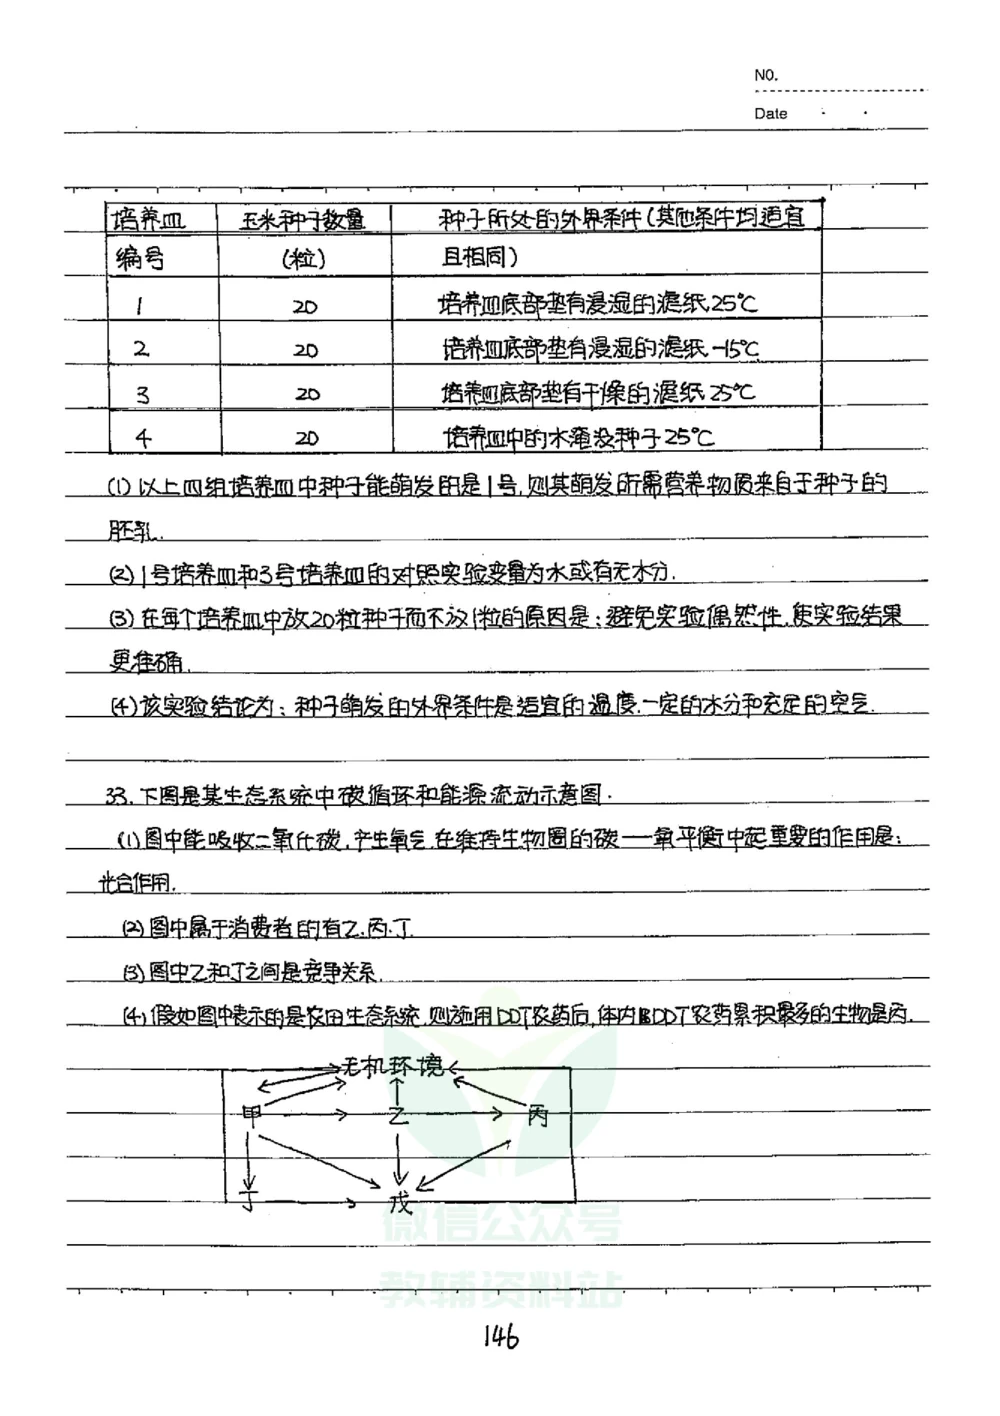 NO.
Date
培养皿 玉米种子数量 种子所处的外界条件(其他条件均适宜
编号 (粒) 且相同)
1 20 培养皿底部垫有浸湿的滤纸 25℃
2 20 培养皿底部垫有浸湿的滤纸 -15℃
3 20 培养皿底部垫有干燥的滤纸 25℃
4 20 培养皿中的水淹没种子 25℃
(1) 以上四组培养皿中种子能萌发的是1号,则其萌发所需营养物质来自于种子的
胚乳.
(2) 1号培养皿和3号培养皿的对照实验变量为水或有无水分.
(3) 在每个培养皿中放20粒种子而不放1粒的原因是:避免实验偶然性,使实验结果
更准确.
(4) 该实验结论为:种子萌发的外界条件是适宜的温度.一定的水分和充足的空气.
33.下图是某生态系统中碳循环和能源流动示意图.
(1)图中能吸收二氧化碳,产生氧气.在维持生物圈的碳——氧平衡中起重要的作用是:
光合作用.
(2)图中属于消费者的有乙.丙.丁.
(3)图中乙和丁之间是竞争关系.
(4)假如图中表示的是农田生态系统.则施用DDT农药后,体内DDT农药累积最多的生物是丙.
无机环境
甲 乙 丙
丁 戊
微信公众号
教辅资料站
146